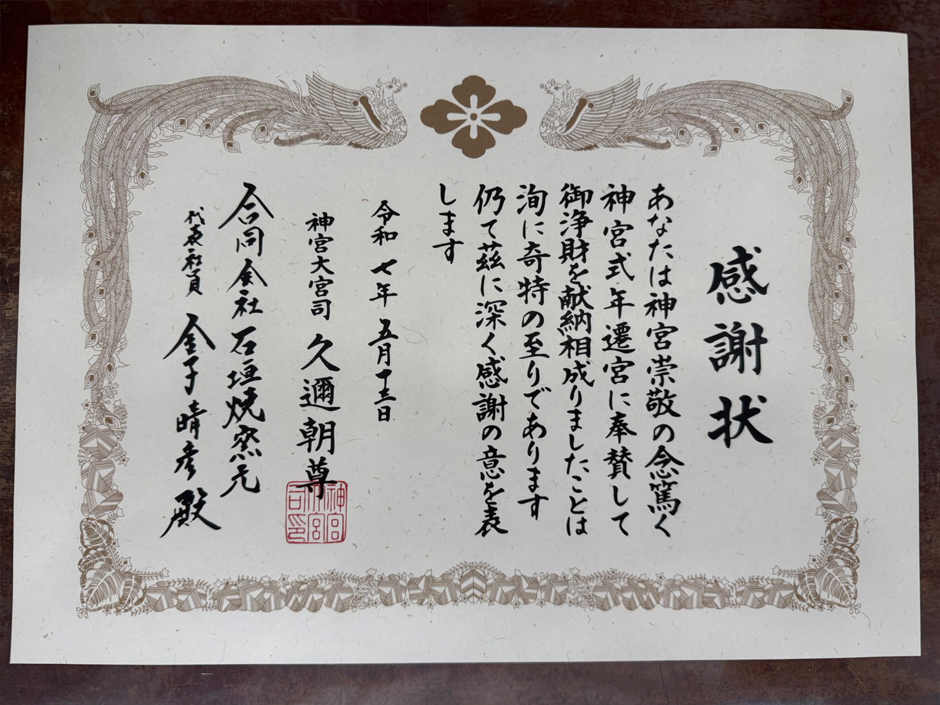 感謝状
あなたは神宮崇敬の念篤く
神宮式年遷宮に奉賛して
御浄財を献納相成りましたことは
洵に奇特の至りであります
仍て茲に深く感謝の意を表
します
令和七年五月十三日
神宮大宮司 久邇朝尊
神宮大宮司印
合同会社 石垣焼窯元
代表社員 金子晴彦殿